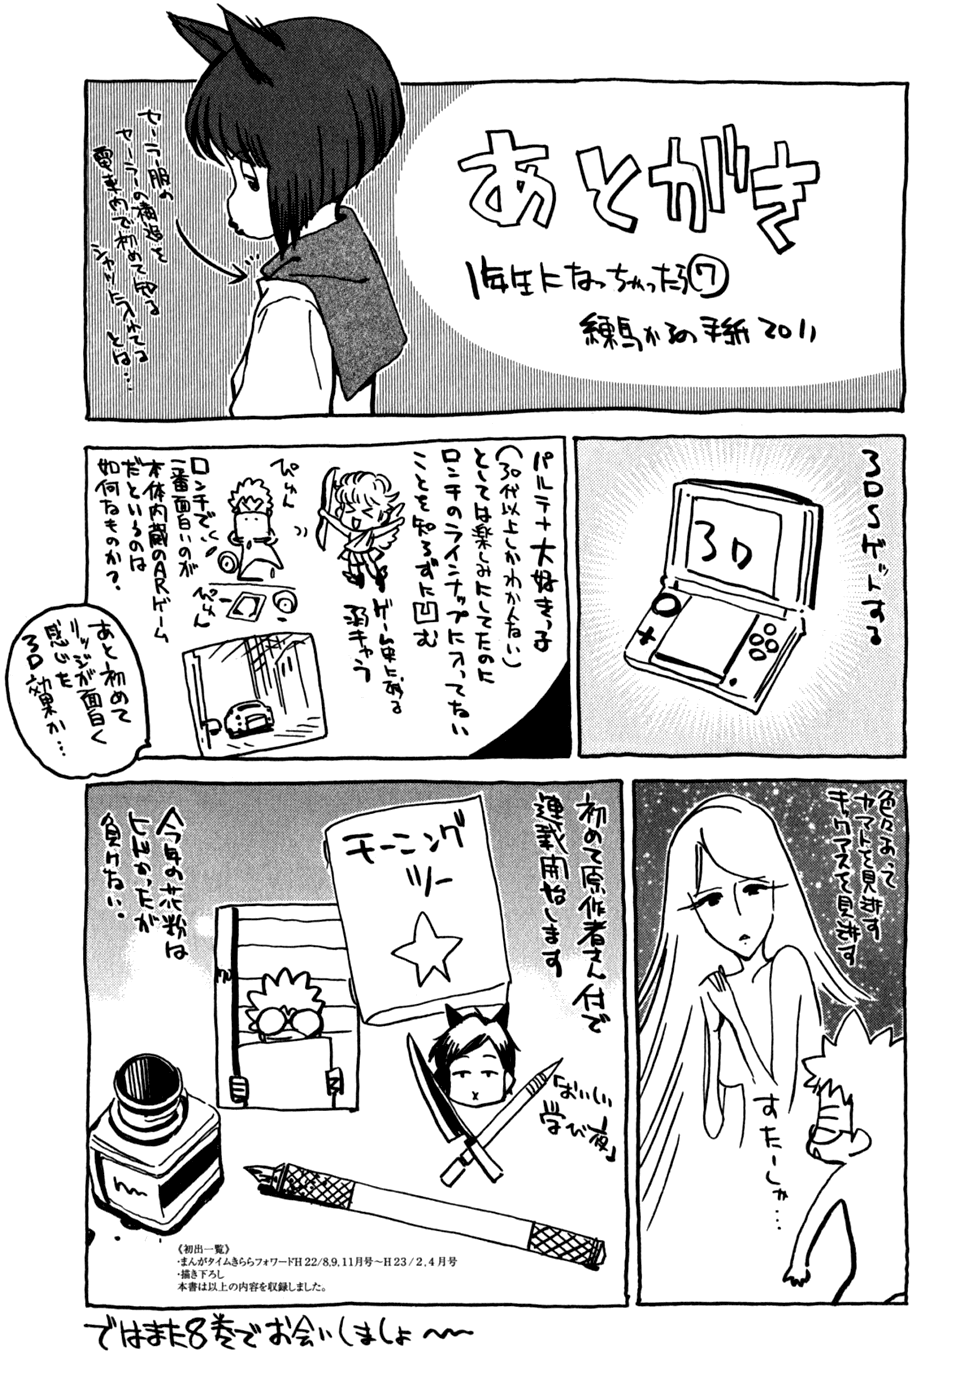 あとがき
1年生になっちゃったら⑦
練馬かるの手紙2011
セーラー服の
セーラーの構造を
電車内で初めて知る
シャツに入れてる
とは…
3DSゲットする
パルテナ大好きっ子
(30代以上しかわかんない)
としては楽しみにしてたのに
ロンチのラインナップに入ってない
ことを知らずに凹む
ゲーム史に残る
弱キャラ
ぴゅん
ロンチで、
一番面白いのが
本体内蔵のARゲーム
だといるのは
如何なものか?
ぴゅん
あと初めて
リッジが面白く
感じた
3D効果か…
色々あって
ヤマトを見逃す
キックアスを見逃す
すたーしゃ…
初めて原作者さん付で
連載開始します
モーニング
ツー
「ばいしい
学び夜」
今年の花粉は
ヒドかったが
負けない。
《初出一覧》
・まんがタイムきららフォワードH22/8,9,11月号〜H23/2,4月号
・描き下ろし
本書は以上の内容を収録しました。
ではまた8巻でお会いしましょ〜